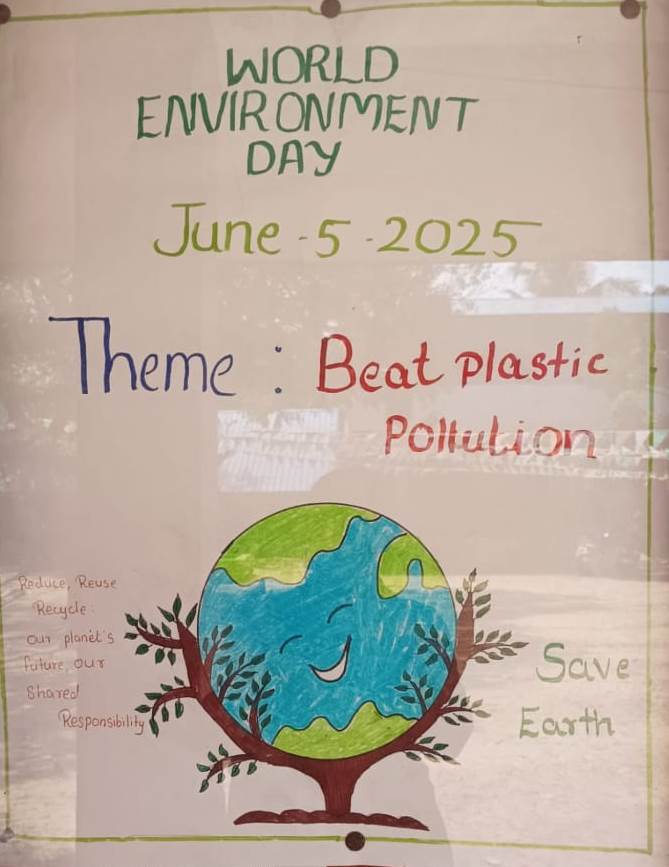 WORLD
ENVIRONMENT
DAY
June - 5 - 2025
Theme : Beat plastic
Pollution
Reduce, Reuse
Recycle:
our planet's
future, our
Shared
Responsibility
Save
Earth